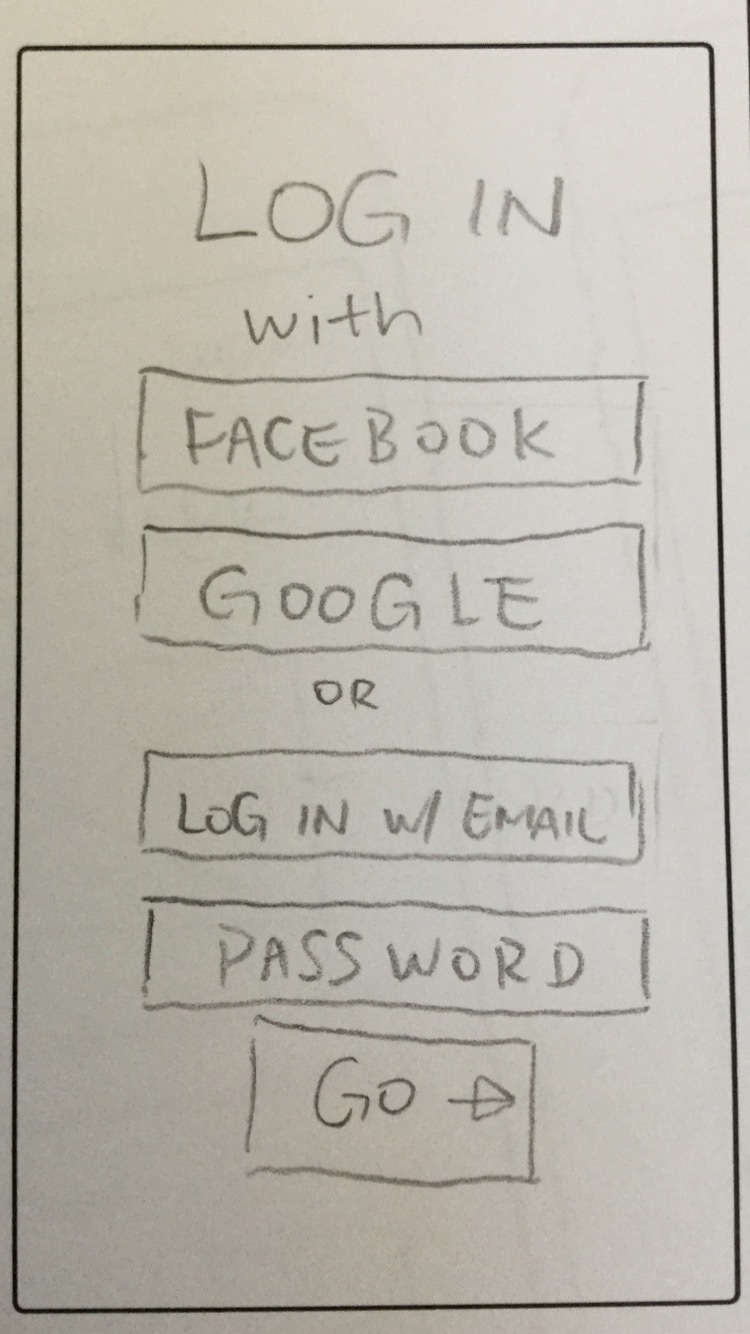 LOG IN
with
FACEBOOK
GOOGLE
OR
LOG IN W/ EMAIL
PASSWORD
GO →